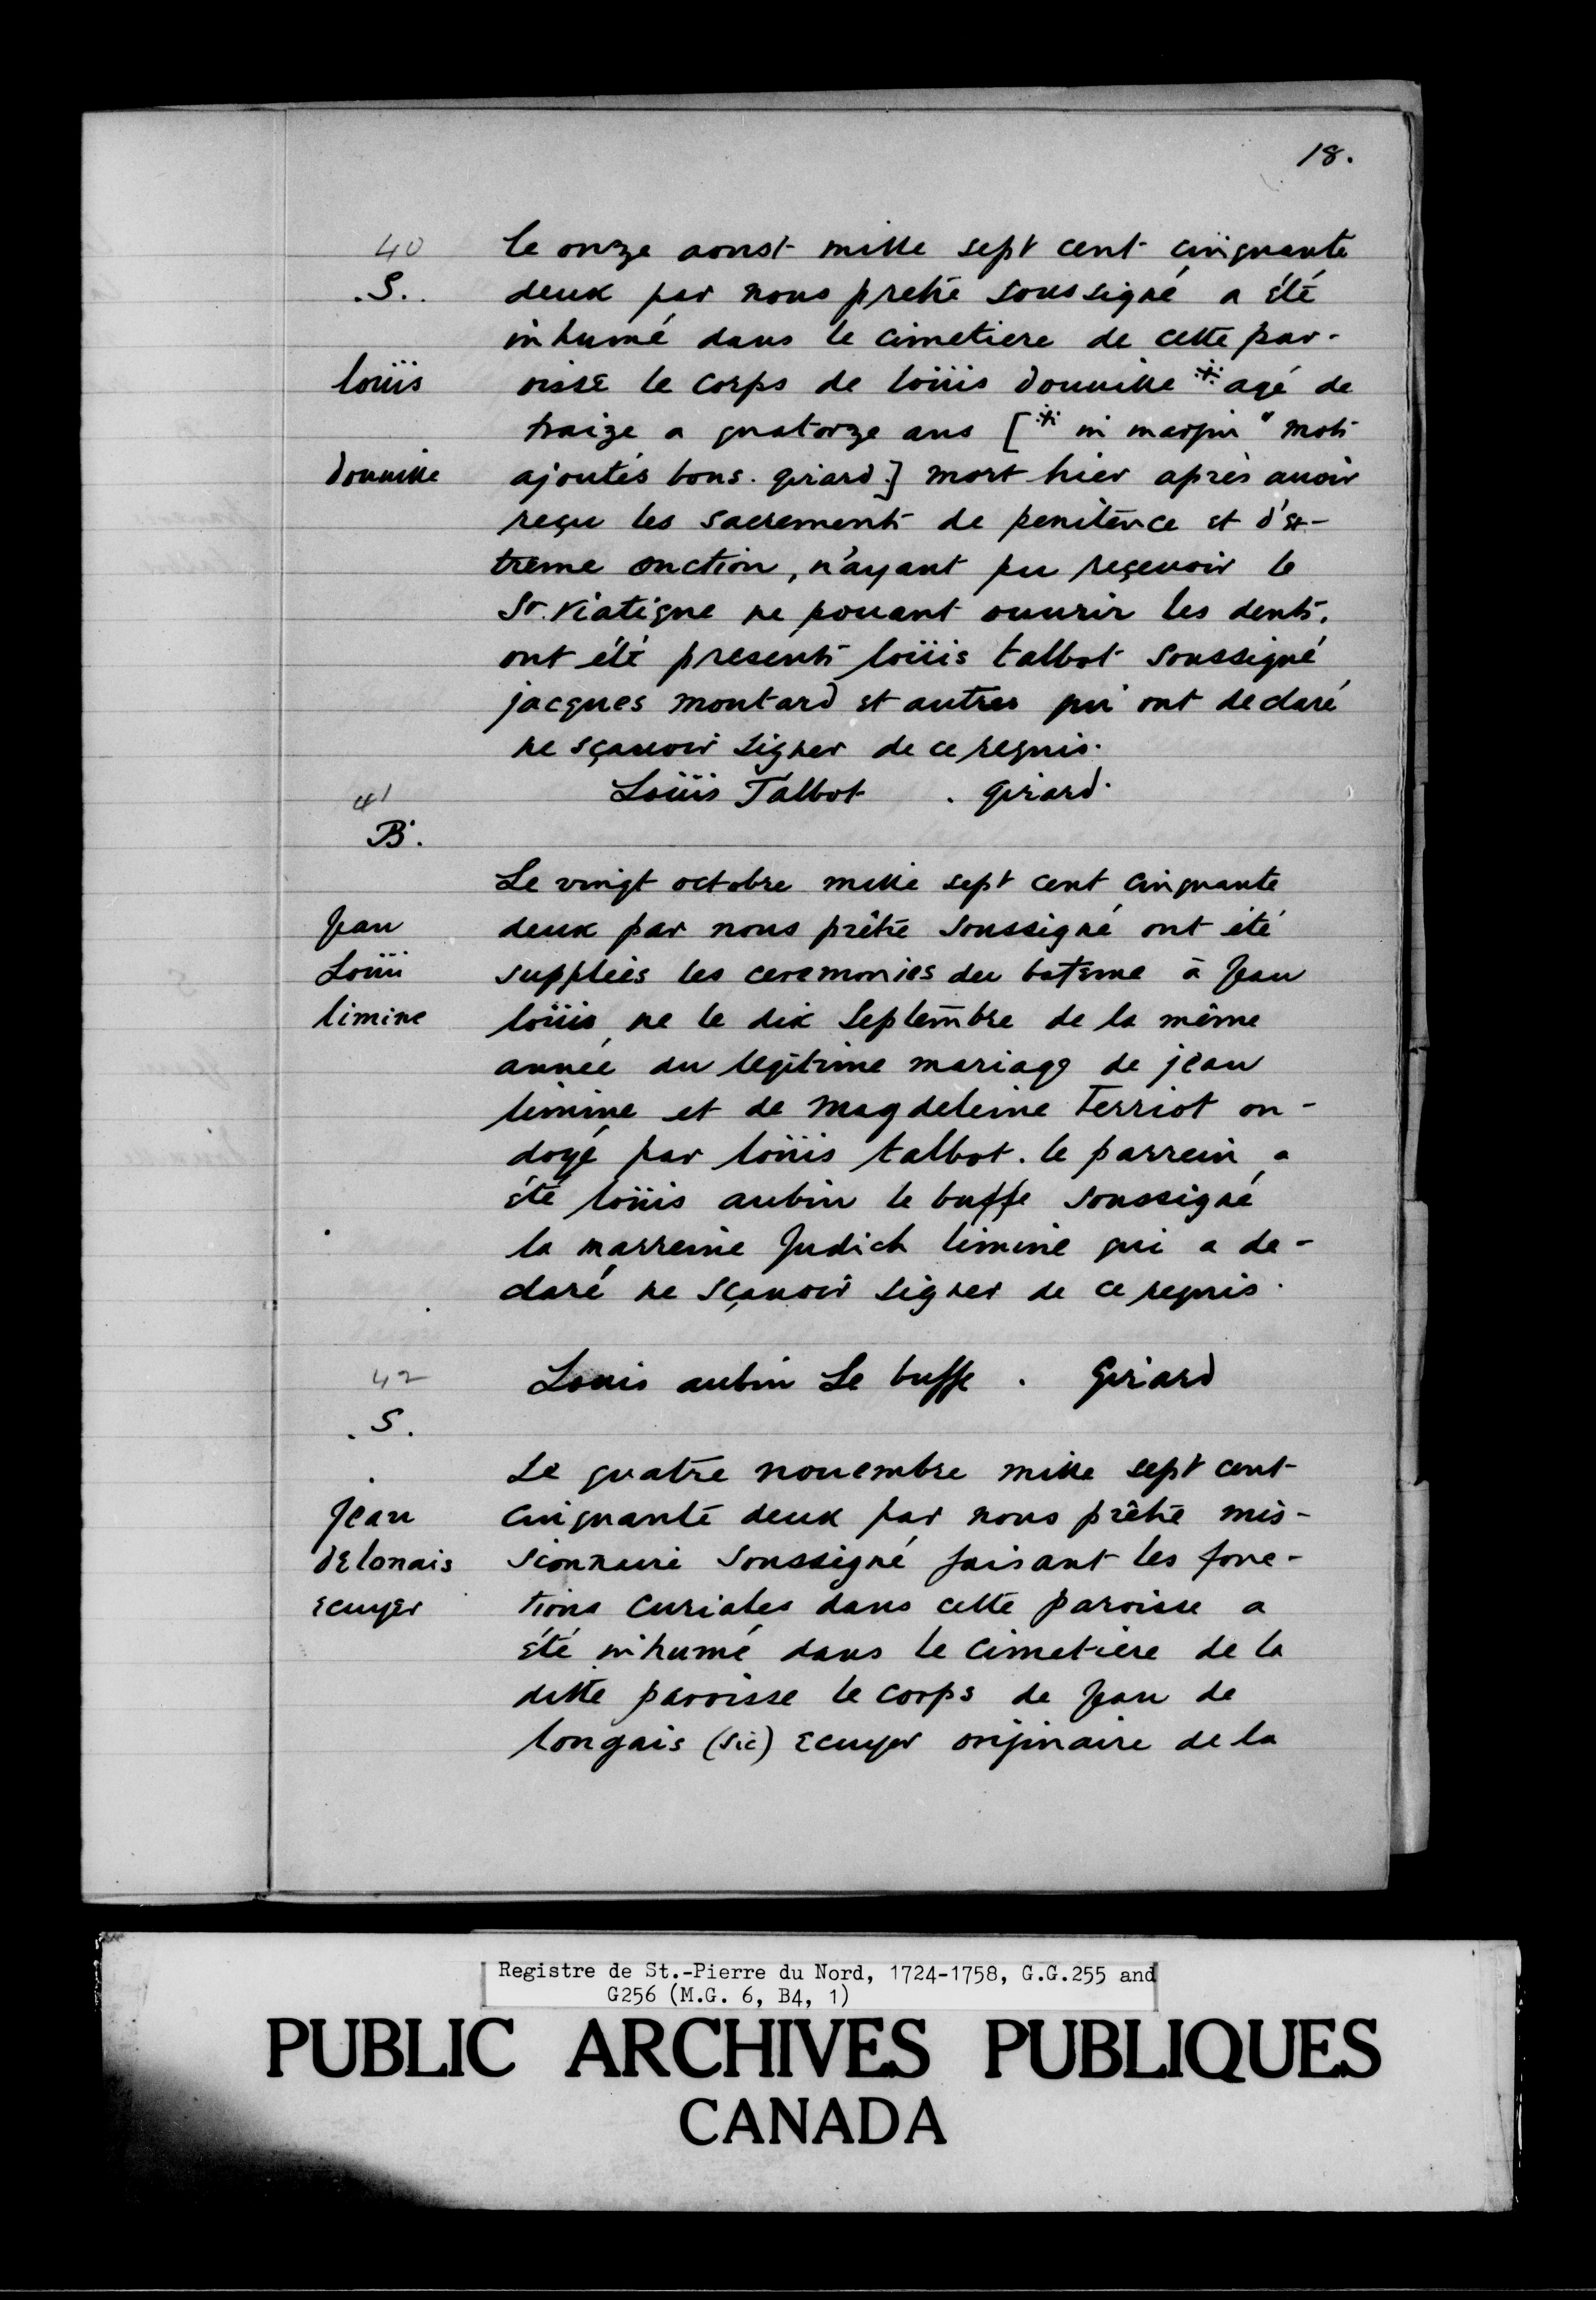 18.
40
S.
le onze aoust mille sept cent cinquante
deux par nous pretre soussigné a été
inhumé dans le cimetiere de cette par-
loüis
oisse le corps de loüis douuille * agé de
traize a quatorze ans [* in margin "mots
douuille
ajoutés bons. girard.] mort hier après auoir
reçu les sacrements de penitence et d'ex-
treme onction, n'ayant pu reçeuoir le
St. Viatique ne pouant ouurir les dents.
ont été presents loüis talbot soussigné
jacques moutard et autres qui ont declaré
ne sçauoir signer de ce requis.
Loüis Talbot . girard.
41
B.
Le vingt octobre mille sept cent cinquante
Jean
deux par nous prêtre soussigné ont été
Loüis
suppléés les ceremonies du bateme à Jean
limine
loüis né le dix Septembre de la même
année du légitime mariage de jean
limine et de magdeleine Terriot on-
doyé par loüis talbot. le parrein a
été loüis aubin le buffe soussigné
la marreine Judich limine qui a de-
claré ne sçauoir signer de ce requis.
42
Louis aubin Le buffe . Girard
S.
Le quatre nouembre mille sept cent
Jean
cinquante deux par nous prêtre mis-
delonais
sionnaire soussigné faisant les fonc-
ecuyer
tions curiales dans cette paroisse a
été inhumé dans le cimetière de la
ditte paroisse le corps de Jean de
longais (sic) ecuyer originaire de la
Registre de St.-Pierre du Nord, 1724-1758, G.G.255 and
G256 (M.G. 6, B4, 1)
PUBLIC ARCHIVES PUBLIQUES
CANADA